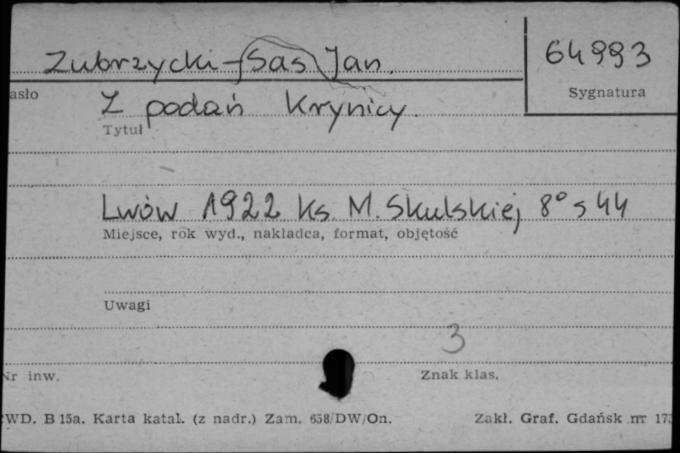 Zubrzycki-Sas Jan.
64993
Sygnatura
asło
Z podań Krynicy.
Tytuł
Lwów 1922 Ks. M. Skulskiej 8° s 44
Miejsce, rok wyd., nakładca, format, objętość
Uwagi
3
Nr inw.
Znak klas.
WD. B 15a. Karta katal. (z nadr.) Zam. 658/DW/On.
Zakł. Graf. Gdańsk nr 173